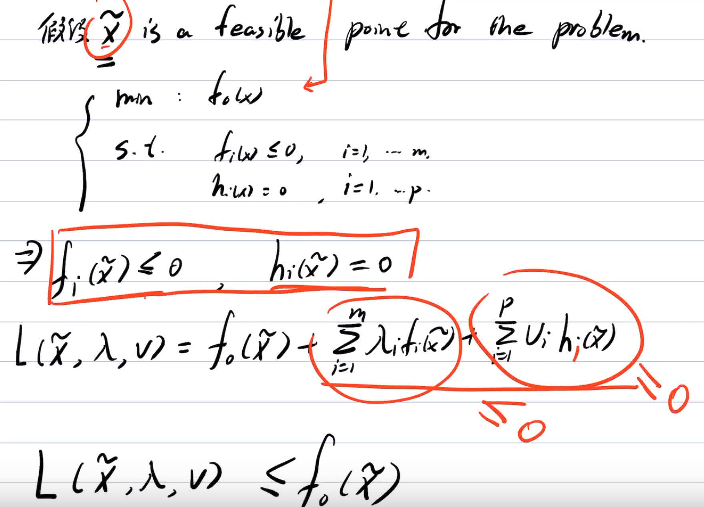 假设 x̃ is a feasible point for the problem.
min : f₀(x)
s.t. fᵢ(x) ≤ 0, i=1, ... m.
hᵢ(x) = 0 , i=1. ...p.
⇒ fᵢ(x̃) ≤ 0 , hᵢ(x̃) = 0
L(x̃, λ, ν) = f₀(x̃) + ∑ᵢ₌₁ᵐ λᵢfᵢ(x̃) + ∑ᵢ₌₁ᵖ νᵢ hᵢ(x̃)
≤ 0
= 0
L(x̃, λ, ν) ≤ f₀(x̃)